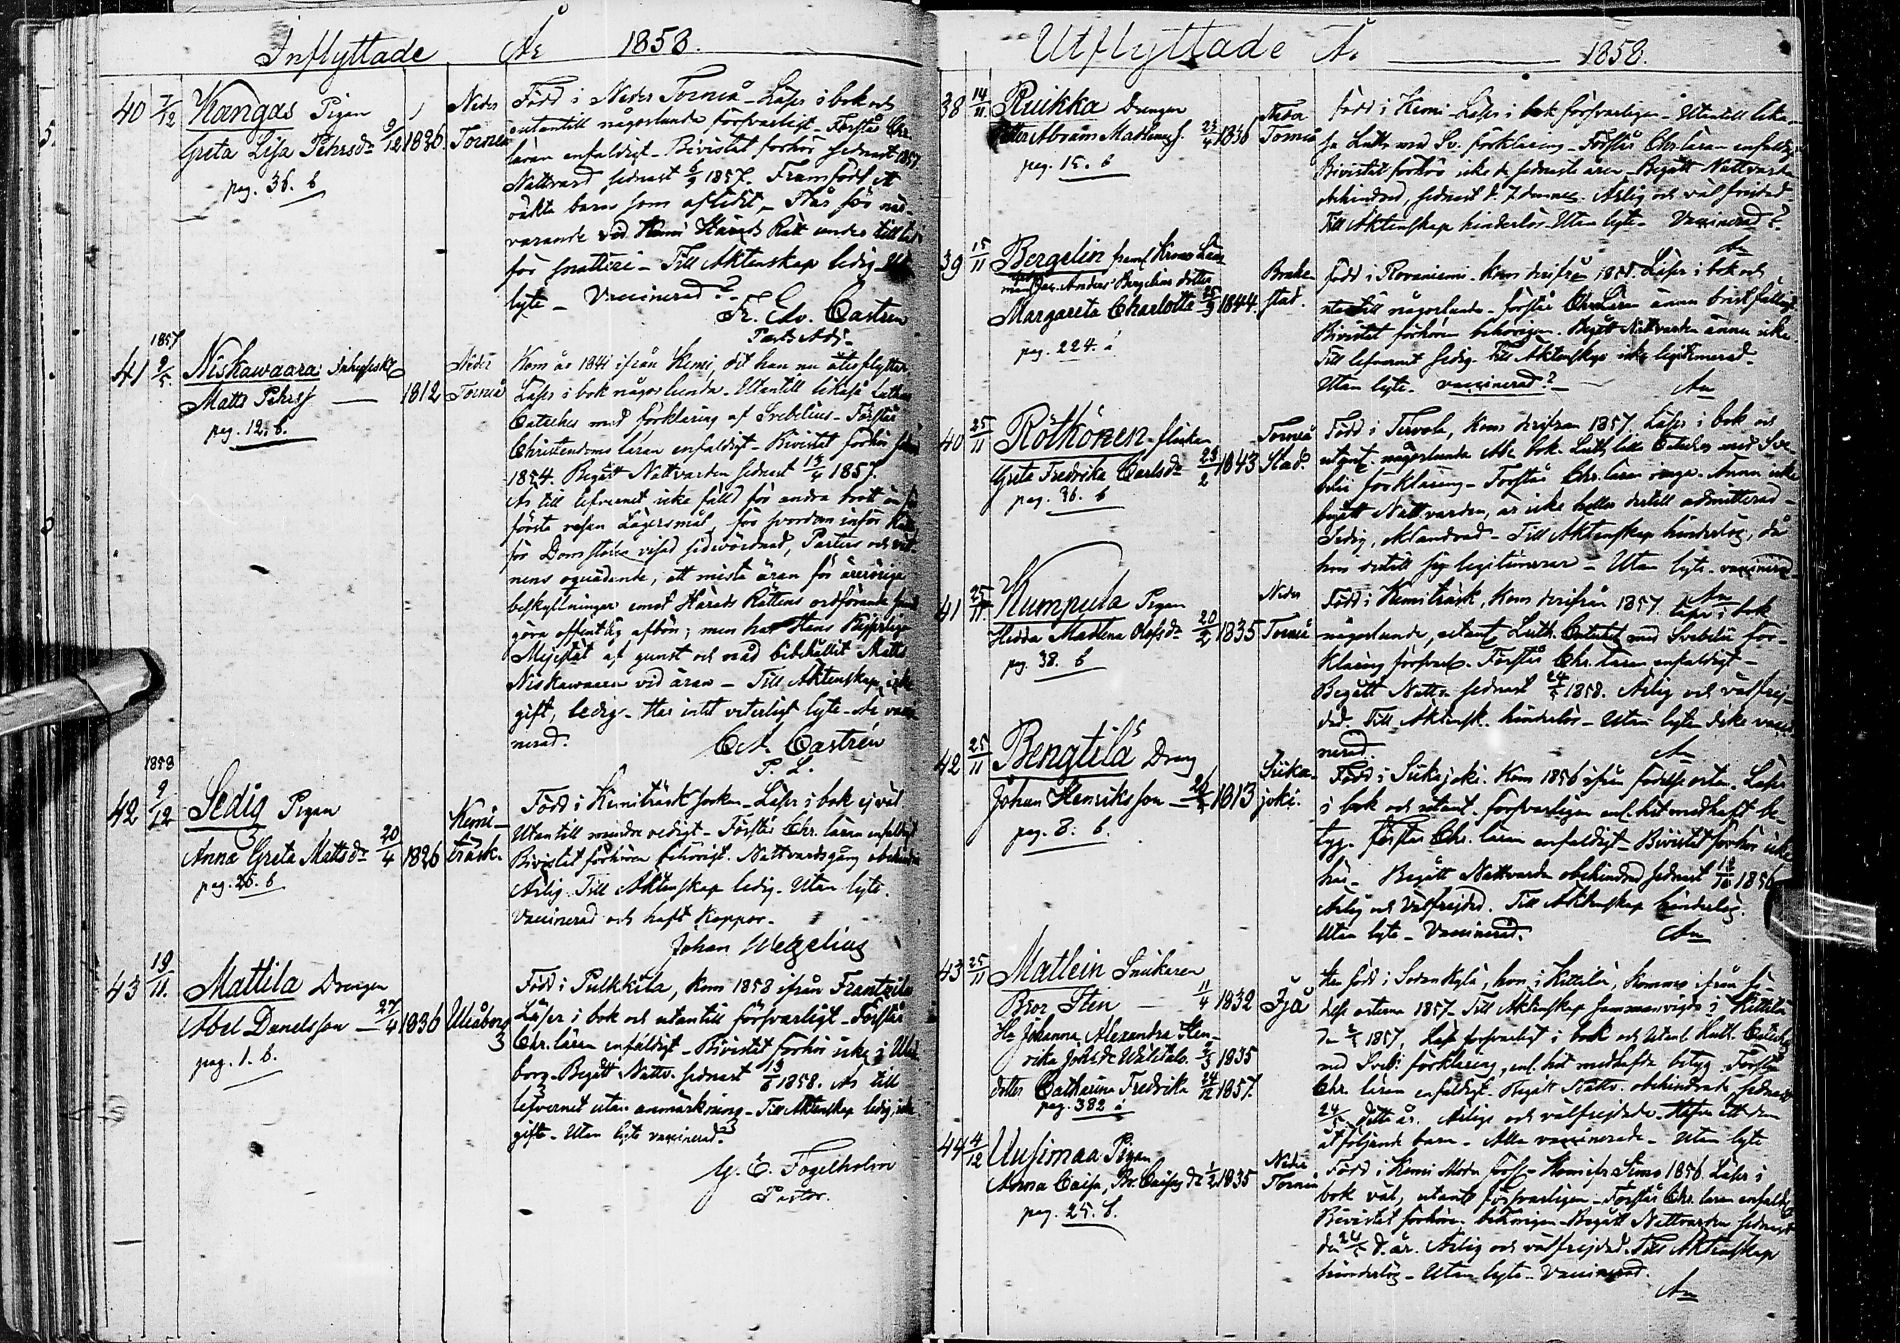 Inflyttade År 1858.
40 7/12 Kangas Pigan
Greta Lisa Pehrsdr 9/12 1836
pag. 36. b
Neder
Torneå
Född i Neder Torneå - Läser i bok och
utantill någorlunda försvarligt - Förstår Chr.
läran enfaldigt - Bivistat förhör sednast 1857
Nattvard sednast 1857. Framfödt ett
oäkta barn som aflidit - Står för när-
varande vid Kemi Härads Rätt under tilltal
för snatteri - Till Äktenskap ledig - Ut.
lyte - Vaccinerad?
Fr. Edv. Castrén
Past. Adj.
1857
41 2/5 Niskawaara
Matts Pehrss. 1812
pag. 12. b.
Neder
Torneå
Kom år 1844 ifrån Kemi, dit han nu återflyttar
Läser i bok någorlunda - Utantill likaså Luthers
Cateches med förklaring af Svebelius - Förstår
Christendoms läran enfaldigt - Bivistat förhör
1854. Begått Nattvarden sednast 13/4 1857.
Är till lefvernet icke fälld för andra brott än för
första resan Lägersmål, för hvordom inför Rätta
för Domstolen visad sidvördnad, Parters och vit-
nens oqvädande, att mista äran för ärerörige
beskyllningar emot Härads Rättens ordförande samt
göra offentlig afbön; men har Hans Kejserliga
Majestät af gunst och nåd bibehållit Matts
Niskawaara vid äran - Till Äktenskap icke
gift, ledig - Har intet veterligt lyte - Är vacci-
nerad.
C. A. Castrén
P. L.
1858
42 9/12 Sedig Pigan
Anna Greta Mattsdr 20/4 1826
pag. 26. b
Kemi-
träsk.
Född i Kemiträsk socken - Läser i bok ej väl
Utantill mindre redigt - Förstår Chr. läran enfaldigt
Bivistat förhören behörigt. Nattvardsgång obehindrad
Ärlig. Till Äktenskap ledig. Utan lyte.
Vaccinerad och haft koppor.
Johan Wegelius
43 19/11. Mattila Drengen
Abel Danielsson 27/4 1836
pag. 1. b.
Uleåborg
Född i Pulkkila, kom 1858 ifrån Frantzila
Läser i bok och utantill försvarligt - Förstår
Chr. läran enfaldigt - Bivistat förhör icke i Uleå
borg - Begått Nattv. sednast 13/6 1858. Är till
lefvernet utan anmärkning - Till Äktenskap ledig, icke
gift - Utan lyte vaccinerad?
G. E. Fogelholm
Pastor.
Utflyttade År 1858.
38 14/11 Ruikka Drengen
Petter Abram Madlenas S. 23/4 1836
pag. 15. b
Neder
Torneå
Född i Kemi - Läser i bok försvarligen - Utantill lika-
så Luth. med Sv. förklaring - Förstår Chr. läran enfaldigt
Bivistat förhör icke de sednaste åren - Begått Nattvard
obehindrad, sednast d. 7 dennes - Ärlig och väl frejdad
Till Äktenskap hinderlös - Utan lyte - Vaccinerad?
An
39 15/11 Bergelin framl. Krono Läns
man Jac. Anders Bergelins dotter
Margareta Charlotta 25/3 1844.
pag. 224. a
Brahe-
stad.
Född i Rovaniemi - kom derifrån 185. Läser i bok och
utantill någorlunda - förstår Chr. Läran ännu bristfälligt
Bivistat förhören behörigen - Begått Nattvarden ännu icke.
Till lefvernet sedig - Till Äktenskap icke legitimerad -
Utan lyte - vaccinerad? -
An
40 25/11 Rötkönen flickan
Greta Fredrika Carlsdr 23/2 1843
pag. 36. b
Torneå
Stad.
Född i Tervola, kom derifrån 1857. Läser i bok och
utant. någorlunda Abc bok. Luth. lilla Cateches med Sve-
belii förklaring - Förstår Chr. läran svaga - Ännu icke
begått Nattvarden, är icke heller dertill admitterad -
Sedig, oklandrad - Till Äktenskap hinderlös, då
hon dertill sig legitimerar - Utan lyte - vaccinerad -
An
41 25/11. Kumpula Pigan
Hedda Madlena Olofsdr 20/2 1835
pg. 38. b
Neder
Torneå
Född i Kemiträsk, kom derifrån 1857. Läser i bok
någorlunda, utant. Luth. Cateches med Svebelii för-
klaring försvarl. Förstår Chr. läran enfaldigt -
Begått Nattv. sednast 24/5 1858. Ärlig och välfrej-
dad. Till Äktensk. hinderlös - Utan lyte Icke vacci-
nerad
An
42 25/11 Bengtilä Dreng
Johan Henriksson 1813
pag. 8. b.
Siika-
joki.
Född i Siikajoki. Kom 1856 ifrån födelse orten. Läser
i bok och utant. försvarligen enl. hit medhaft be-
tyg. Förstår Chr. läran enfaldigt Bivistat förhör icke
här - Begått Nattvarden obehindrad sednast 1856
Ärlig och Välfrejdad. Till Äktenskap hinderlös.
Utan lyte - Vaccinerad.
An
43 25/11 Matlein Snickaren
Bror Sten 11/4 1832
Hu Johanna Alexandra Hen-
rika Johsdr Wälitalo 1835
dotter Catharina Fredrika 24/12 1857.
pag. 382 a
Ijå
Han född i Sodankylä, hon i Kittilä, kommo ifrån fö-
delse orterna 1857 - Till Äktenskap sammanvigde i Kittilä
1857, Läsa försvarligt i bok och utant. Luth. Cateches
med Sveb. förklaring, enl. hit medhafde betyg - Förstå
Chr. läran enfaldigt - Begått Nattv. obehindrade sednast
24/5 detta år. Ärlige och välfrejdade - Hafva ett dem
åtföljande barn - Alla vaccinerade - Utan lyte
44 4/12 Uusimaa Pigan
Anna Caisa, Br. Caisas dr 1/2 1835
pag. 25. b.
Neder
Torneå
Född i Kemi Moder förs. - Kom ifr. Simo 1856. Läser i
bok väl, utantill försvarligen - Förstår Chr. läran enfaldigt
Bivistat förhören behörigen - Begått Nattvarden sednast
den 24/5 d. år. Ärlig och välfrejdad. Till Äktenskap
hinderlös - Utan lyte - Vaccinerad.
An